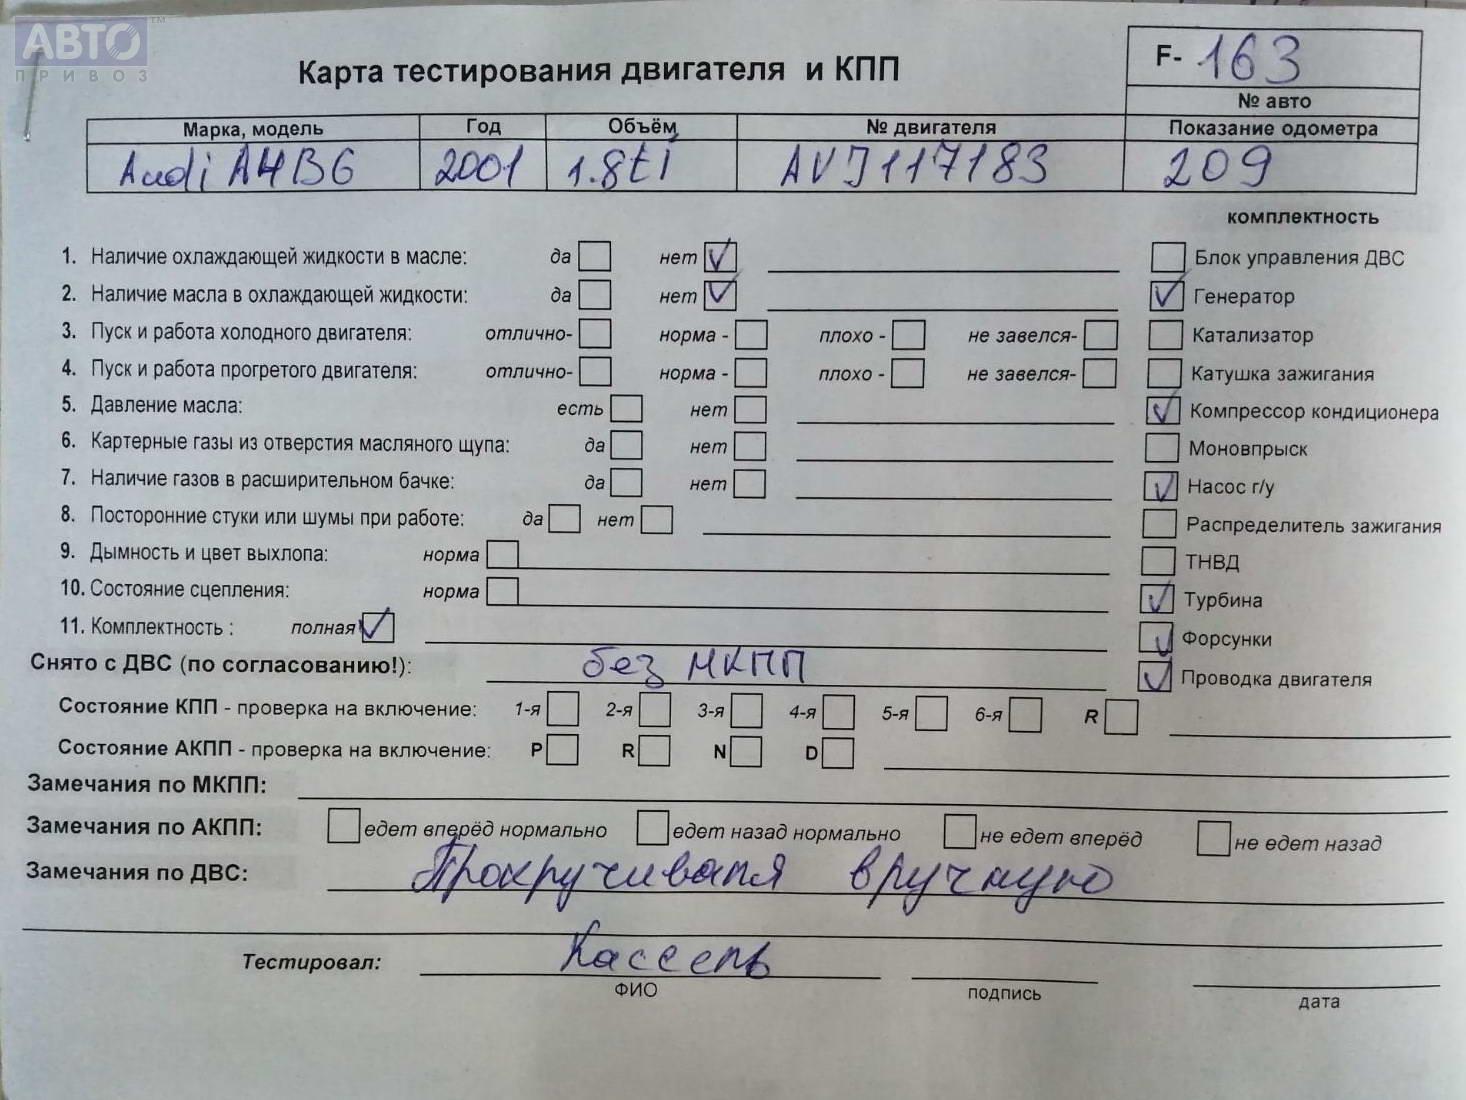 АВТО ™
ПРИВОЗ
Карта тестирования двигателя и КПП
F- 163
№ авто
Марка, модель Год Объём № двигателя Показание одометра
Audi A4B6 2001 1.8ti AVJ117183 209
комплектность
1. Наличие охлаждающей жидкости в масле: да нет Блок управления ДВС
2. Наличие масла в охлаждающей жидкости: да нет Генератор
3. Пуск и работа холодного двигателя: отлично- норма - плохо - не завелся- Катализатор
4. Пуск и работа прогретого двигателя: отлично- норма - плохо - не завелся- Катушка зажигания
5. Давление масла: есть нет Компрессор кондиционера
6. Картерные газы из отверстия масляного щупа: да нет Моновпрыск
7. Наличие газов в расширительном бачке: да нет Насос г/у
8. Посторонние стуки или шумы при работе: да нет Распределитель зажигания
9. Дымность и цвет выхлопа: норма ТНВД
10. Состояние сцепления: норма Турбина
11. Комплектность : полная Форсунки
Снято с ДВС (по согласованию!): без МКПП Проводка двигателя
Состояние КПП - проверка на включение: 1-я 2-я 3-я 4-я 5-я 6-я R
Состояние АКПП - проверка на включение: P R N D
Замечания по МКПП:
Замечания по АКПП: едет вперёд нормально едет назад нормально не едет вперёд не едет назад
Замечания по ДВС: Прокручивался вручную
Тестировал:
ФИО подпись дата